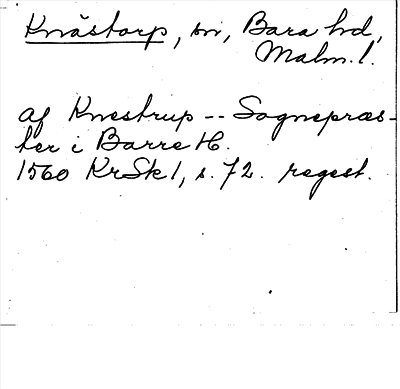 Knästorp, sn, Bara hd,
Malm. l.
af Knestrup -- Sognepræs-
ter i Barre H.
1560 KrSk 1, s. 72. regest.